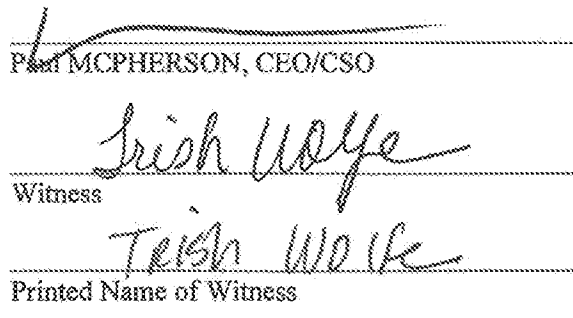 Paul MCPHERSON, CEO/CSO
Trish Wolfe
Witness
TRISH WOlfe
Printed Name of Witness